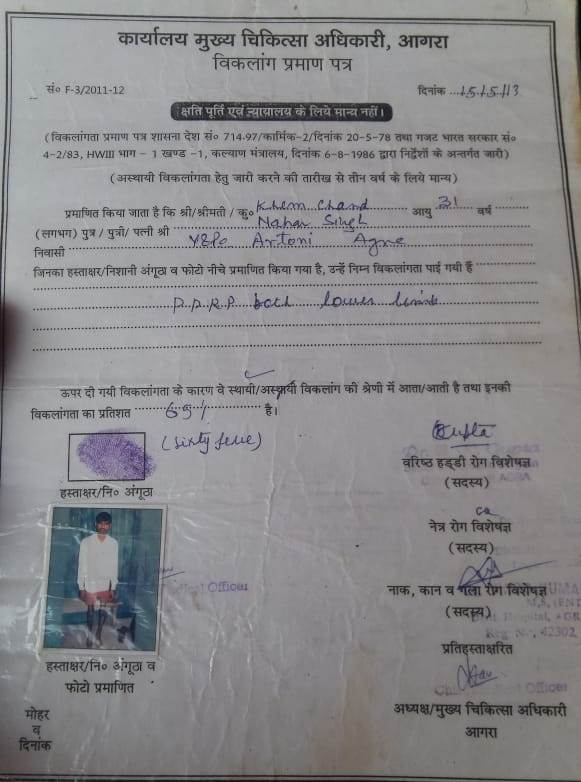 कार्यालय मुख्य चिकित्सा अधिकारी, आगरा
विकलांग प्रमाण पत्र
सं० F-3/2011-12 दिनांक ...15.15.113
क्षति पूर्ति एवं न्यायालय के लिये मान्य नहीं।
(विकलांगता प्रमाण पत्र शासना देश सं० 714-97/कार्मिक-2/दिनांक 20-5-78 तथा गजट भारत सरकार सं०
4-2/83, HWIII भाग - 1 खण्ड -1, कल्याण मंत्रालय, दिनांक 6-8-1986 द्वारा निर्देशों के अन्तर्गत जारी)
(अस्थायी विकलांगता हेतु जारी करने की तारीख से तीन वर्ष के लिये मान्य)
प्रमाणित किया जाता है कि श्री/श्रीमती / कु० Khem Chand आयु 31 वर्ष
(लगभग) पुत्र / पुत्री/ पत्नी श्री Nahar Singh
निवासी Artoni
जिनका हस्ताक्षर/निशानी अंगूठा व फोटो नीचे प्रमाणित किया गया है, उन्हें निम्न विकलांगता पाई गयी हैं
P.P.R.P. both lower limbs
ऊपर दी गयी विकलांगता के कारण वे स्थायी/अस्थायी विकलांग की श्रेणी में आता/आती है तथा इनकी
विकलांगता का प्रतिशत 65% है।
(sixty five)
वरिष्ठ हड्डी रोग विशेषज्ञ
(सदस्य)
हस्ताक्षर/नि० अंगूठा
नेत्र रोग विशेषज्ञ
(सदस्य)
Officer
नाक, कान व गला रोग विशेषज्ञ
(सदस्य)
42302
प्रतिहस्ताक्षरित
हस्ताक्षर/नि० अंगूठा व
फोटो प्रमाणित
Officer
अध्यक्ष/मुख्य चिकित्सा अधिकारी
आगरा
मोहर
व
दिनांक